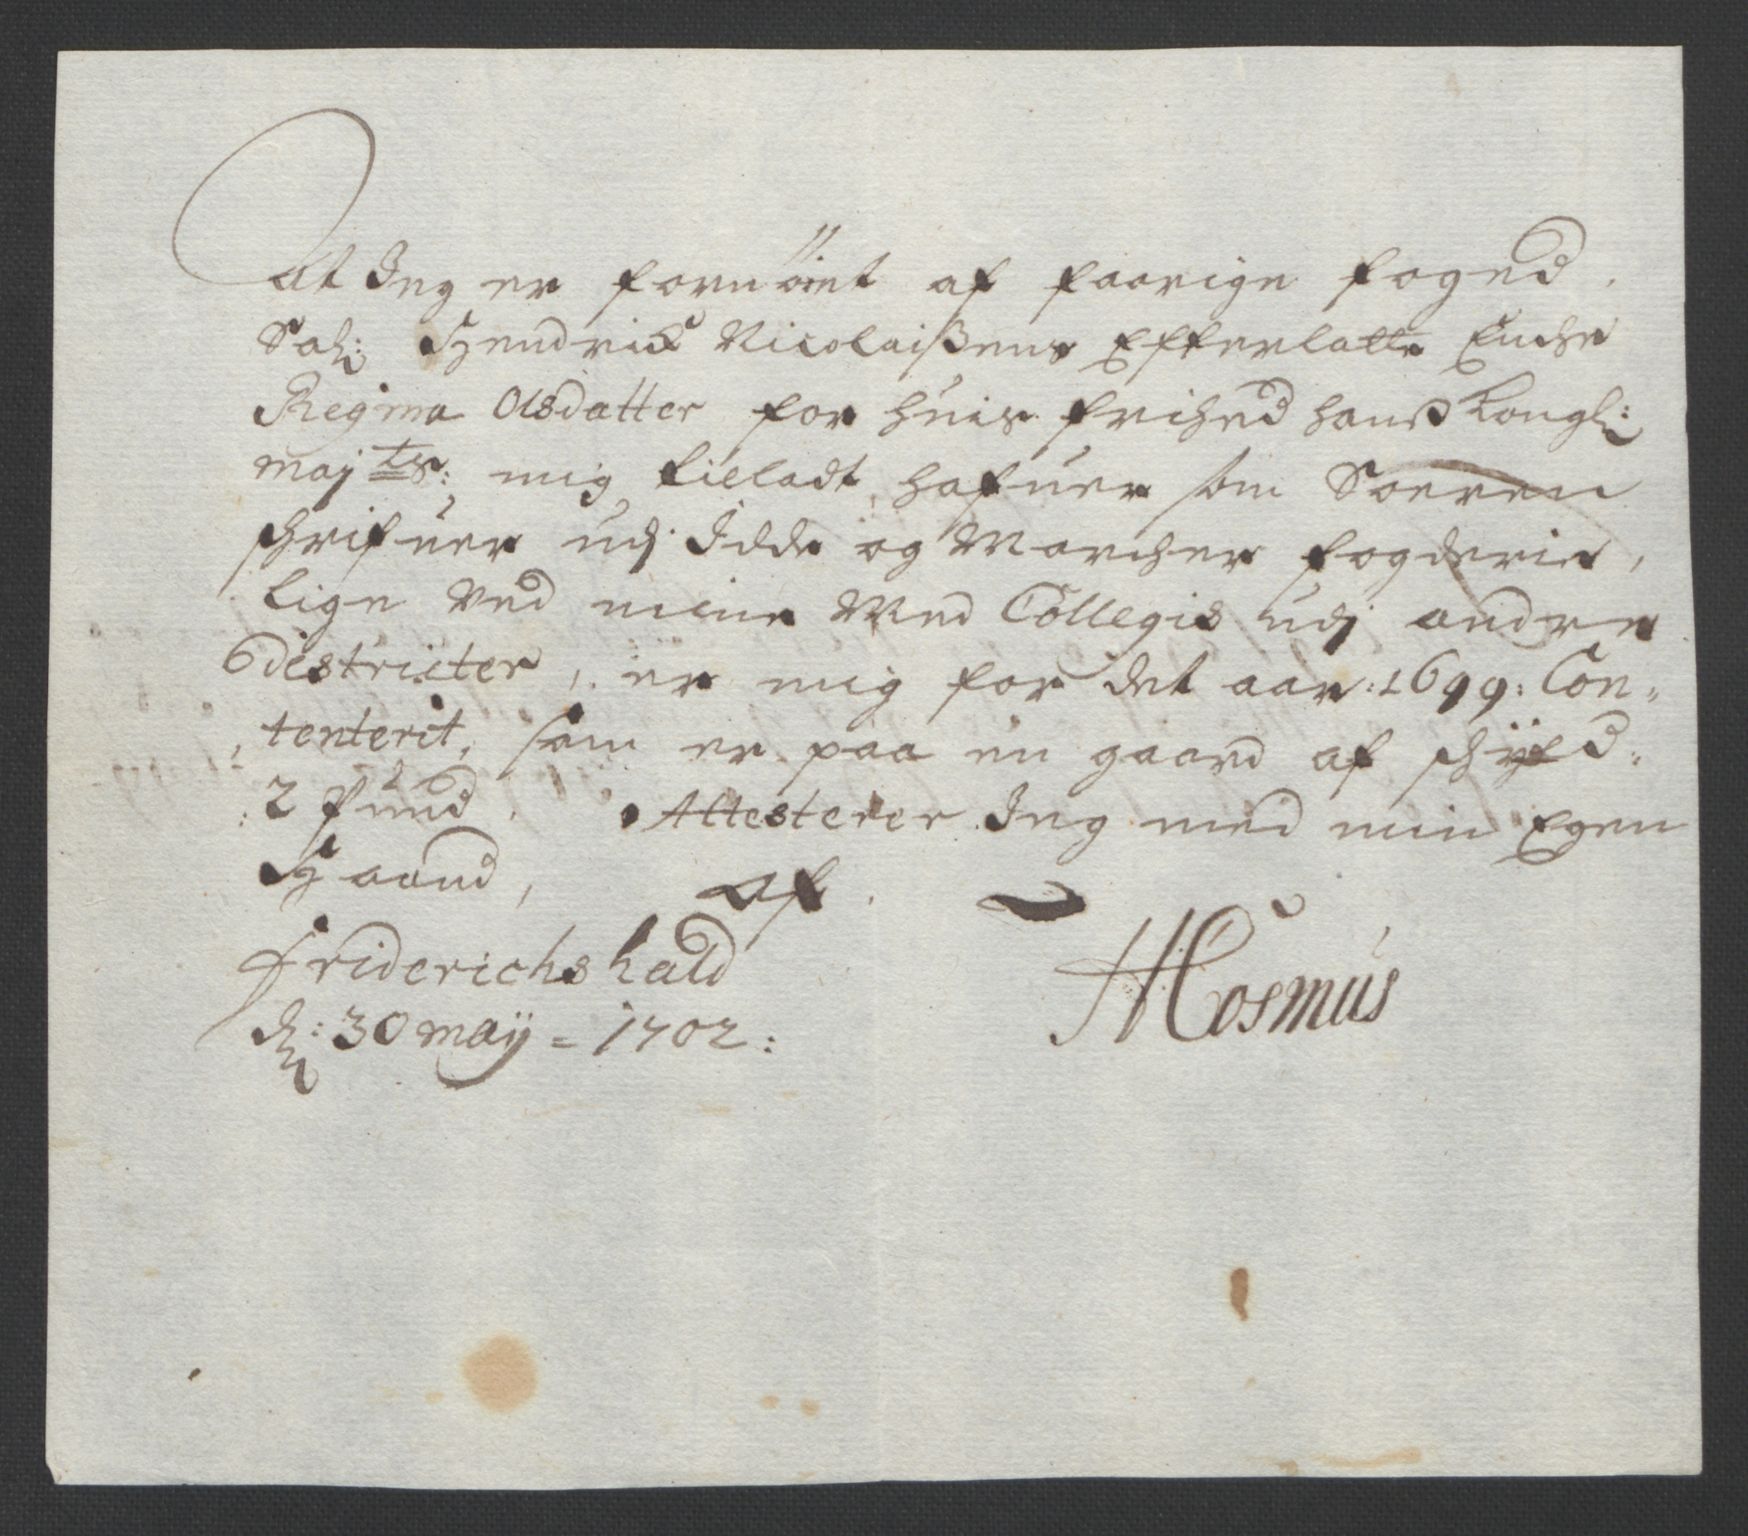 At Jeg er fornöiet af faarige foged,
Sal: Hendrick Nicolaißens Efterlatte Enche
Regina Olsdatter for huis frihed hanß Kongl:
maj<sup>ts</sup>: mig tilladt hafuer som Soeren
schrifuer udj Idde og Marcher fogderie,
lige ved mine Med Collegis udj andre
Districter, er mig for det aar: 1699: Con-
tenterit, som er paa en gaard af schyld:
: 2 Pund. Attesterer Jeg med min Egen
Haand, af
Friderichshald
d: 30 maÿ = 1702:
HCosmus